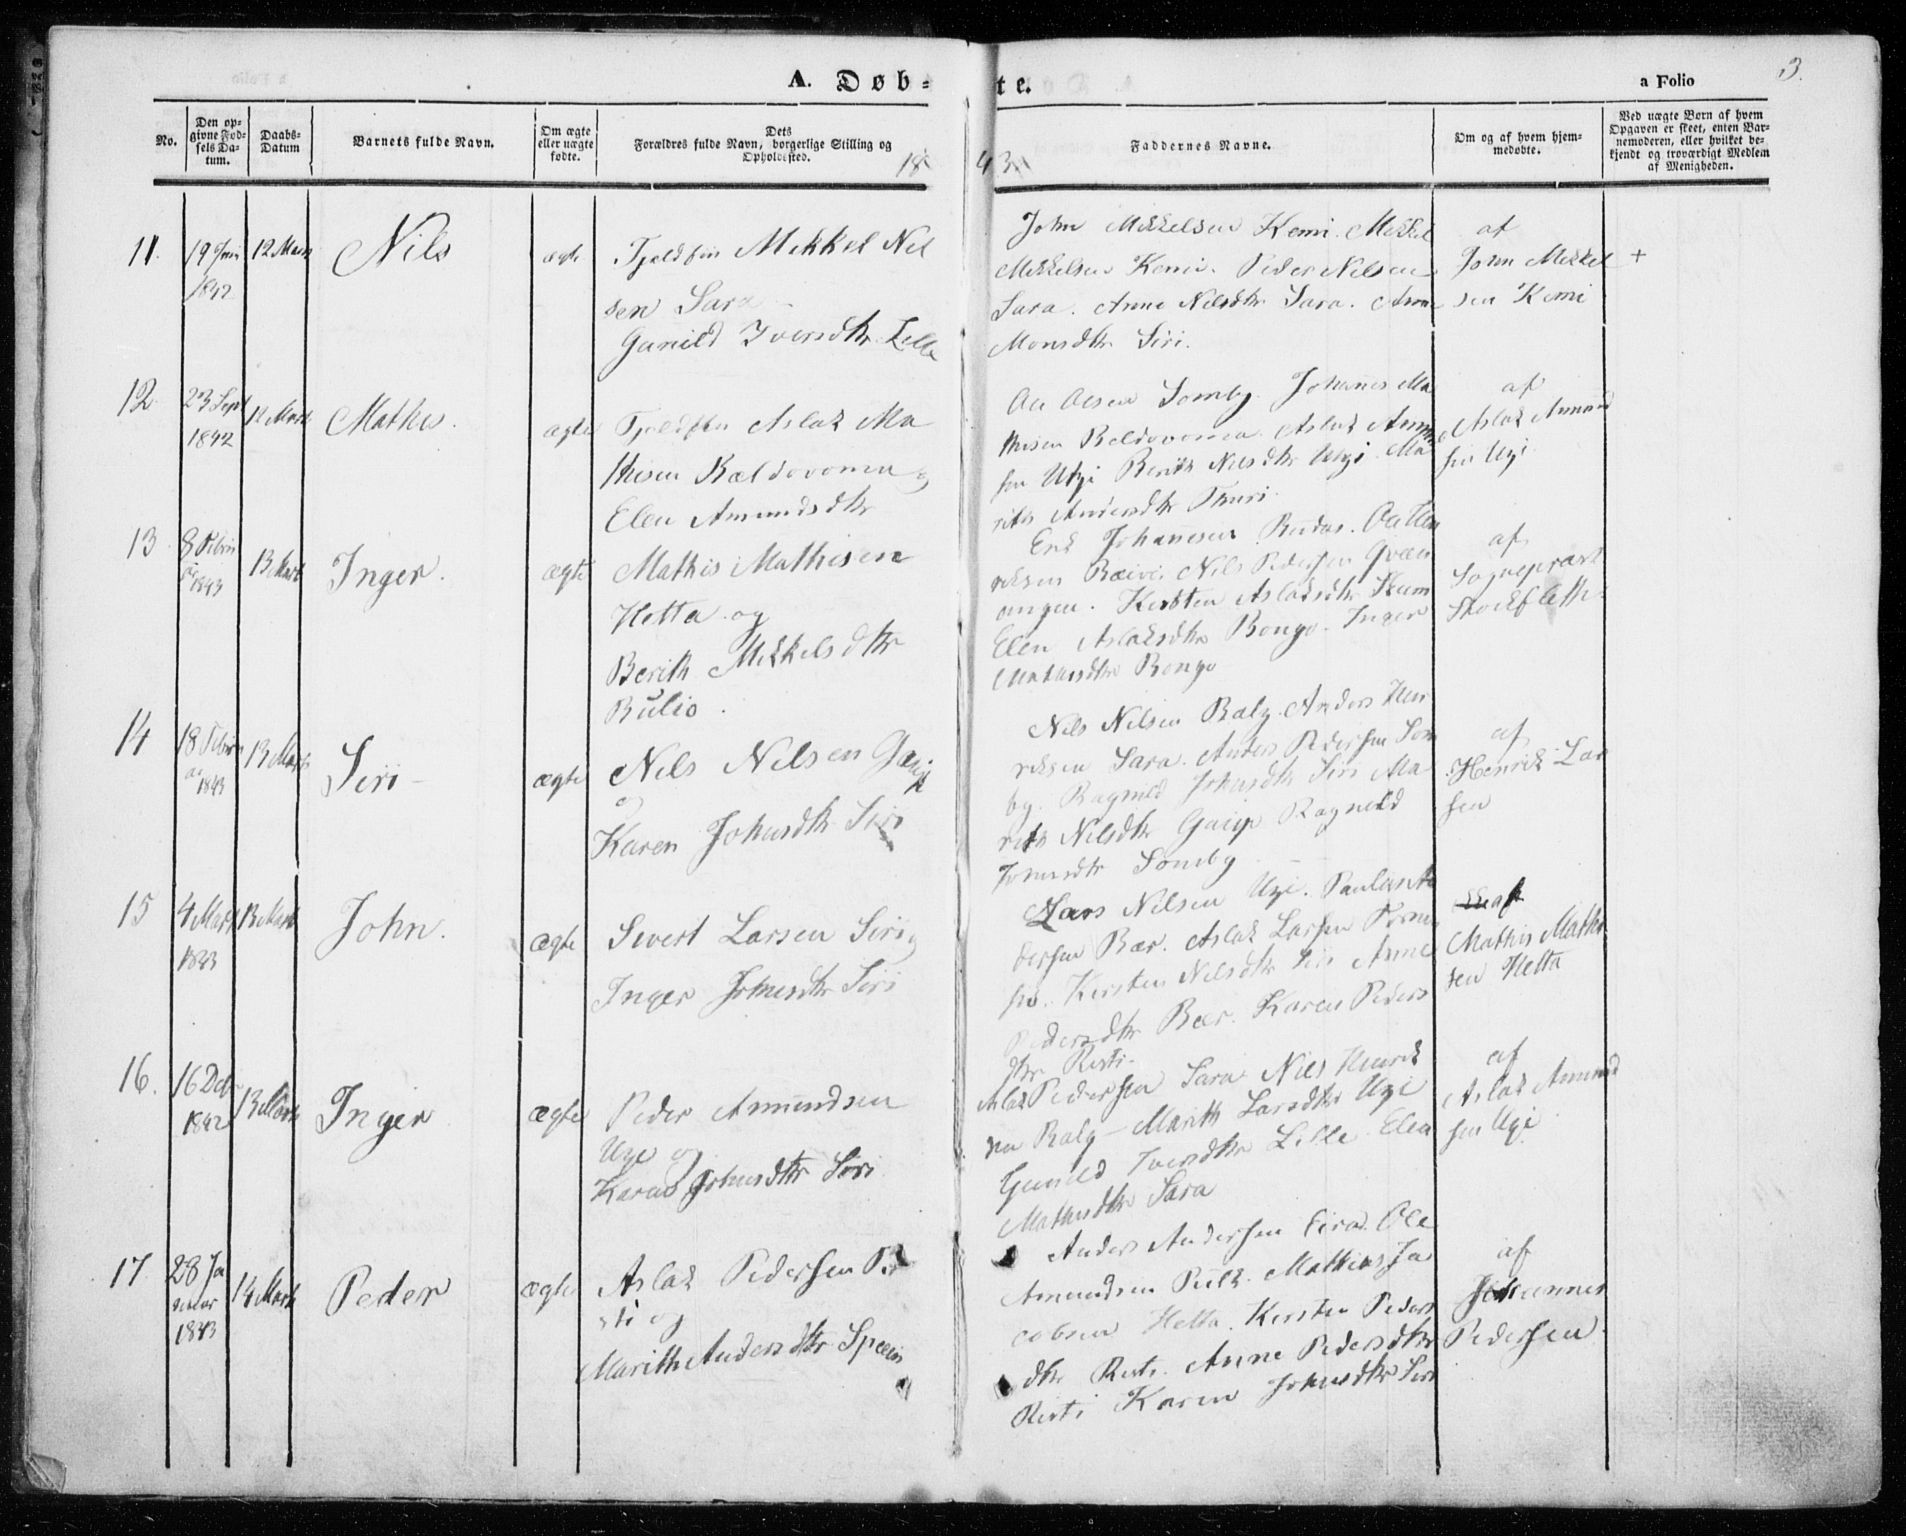 A. Døb-te.
a Folio
3.
No.
Den opgivne Fødsels Datum.
Daabs-Datum
Barnets fulde Navn.
Om ægte eller uægte fødte.
Dets Forældres fulde Navn, borgerlige Stilling og Opholdssted.
1843
Faddernes Navne.
Om og af hvem hjemmedøbte.
Ved uægte Børn af hvem Opgaven er skeet, enten Barnemoderen, eller hvilket bekjendt og troværdigt Medlem af Menigheden.
11. 19
1842
12 Marts
Nils
ægte
Fjeldfin Mikkel Nil
sen Sara
Gunild Iversdtr Lille
John Mikkelsen Kemi. Mikkel
Mikkelsen Kemi. Peder Nilsen
Sara. Anne Nilsdtr Sara. Anne
Monsdtr Siri.
af
John Mikkel
sen Kemi
+
12. 23 Sept
1842
12 Marts
Mathis.
ægte
Fjeldfin Aslak Ma
thisen Bældovoma og
Elen Amundsdtr
Ole Olsen Somby. Johannes Ma
thisen Beldovoma. Aslak Amun
sen Utzi Berith Nilsdtr Utzi. Ma
rith Andersdtr Thuri.
af
Aslak Amund
sen Uzi.
13. 8 Febru
ar 1843
13 Marts
Inger.
ægte
Mathis Mathisen
Hetta og
Berith Mikkelsdtr
Bulio.
Erik Johannesen Budas. Ole Hen
riksen Bæivi. Nils Pedersen Qvæn
angen. Kirsten Aslaksdtr Skum
Elen Aslaksdtr Bongo. Inger
Mathisdtr Bongo
af
Sognepræst
Stockfleth.
14 18 Febru
ar 1843
13 Marts
Siri
ægte
Nils Nilsen Gaup
og
Karen Johnsdtr Siri
Nils Nilsen Balg. Anders Hen
riksen Sara. Anders Pedersen Som
by. Ragnild Johnsdtr Siri Ma
rith Nilsdtr Gaup Ragnild
Johnsdtr Somby
af
Henrik Lar
sen
15 4 Marts
1843
13 Marts
John.
ægte
Sivert Larsen Siri og
Inger Johnsdtr Siri
Lars Nilsen Uzi. Paul An
dersen Bær. Aslak Larsen
Kirsten Nilsdtr Siri Anne
Pedersdtr Bær. Karen Peders
dtr Risti.
af
Mathis Mathi
sen Hetta
16. 16 Debr
1842
13 Marts
Inger
ægte
Peder Amundsen
Uzi og
Karen Johnsdtr Siri
Aslak Pedersen Sara Nils Henrik
sen Balg - Marith Larsdtr Uzi
Gunild Iversdtr Lille. Elen
Mathisdtr Sara
af
Aslak Amund
sen Uzi
17 28 Ja
nuar
1843
14 Marts
Peder
ægte
Aslak Pedersen Ri
sti og
Marith Andersdtr Spein
Anders Andersen Eira. Ole
Amundsen Pulk. Mathias Ja
cobsen Hetta. Kirsten Peders
dtr Risti. Anne Pedersdtr
Risti Karen Johnsdtr Siri
af
Johannes
Pedersen.